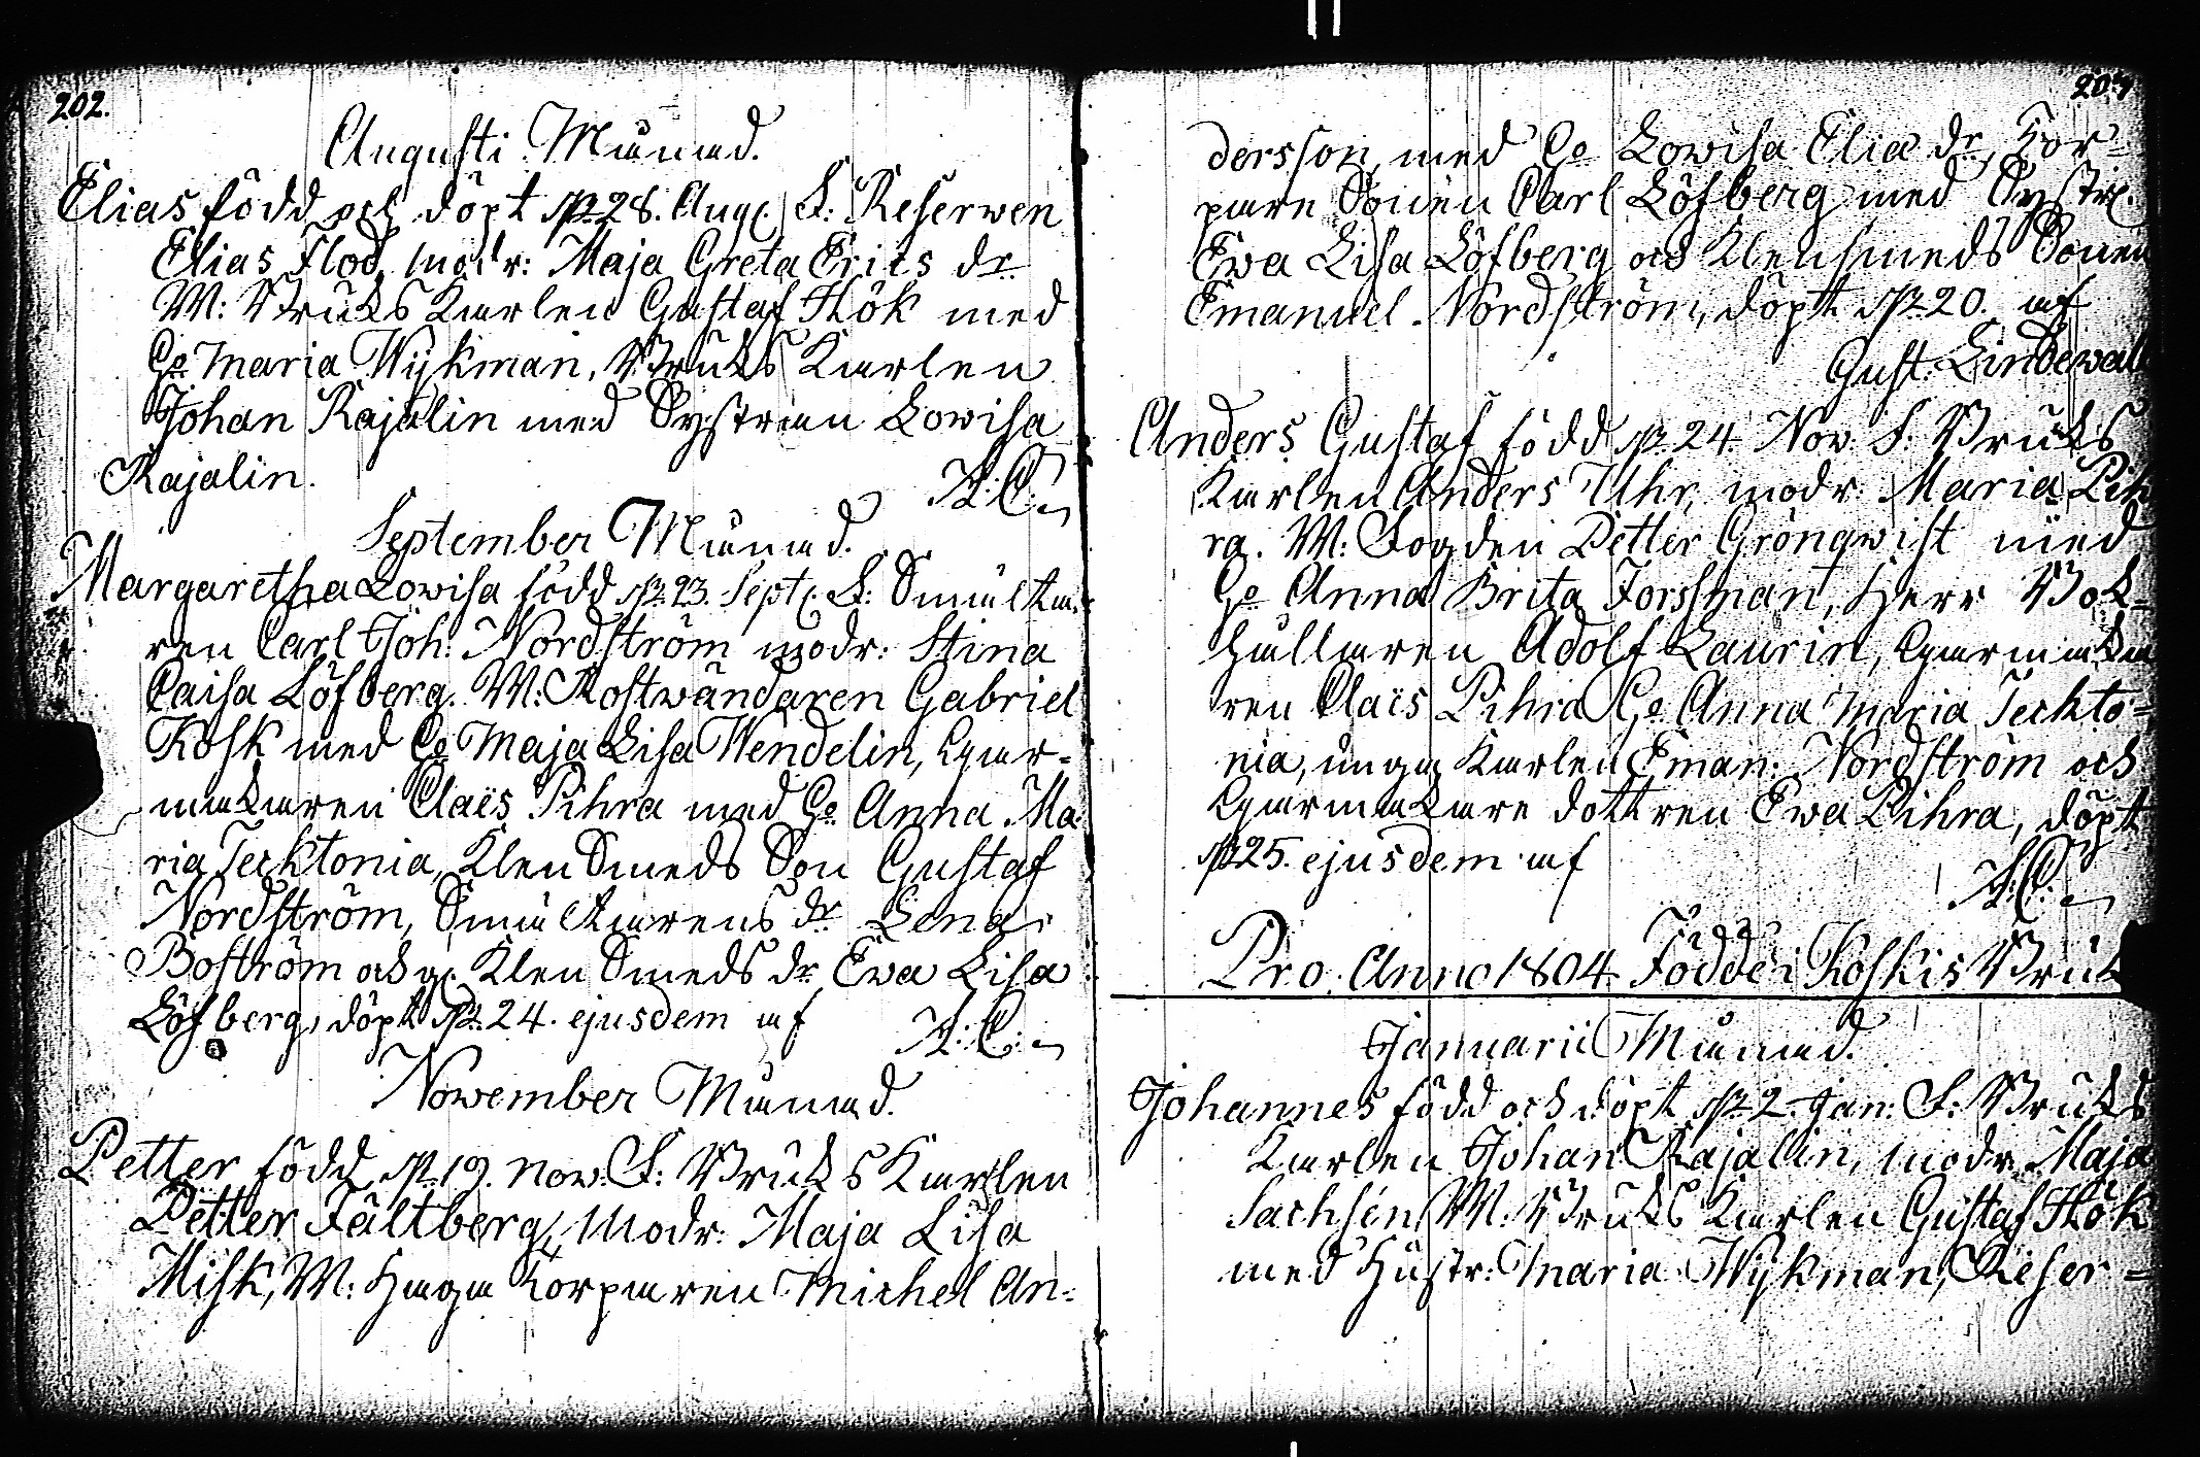 202.
Augusti Månad.
Elias född och döpt d. 28. Aug. F: Reserven
Elias Flod, modr: Maja Greta Erics dr
W: Bruks Karlen Gustaf Hök med
Maria Wijkman, Bruks Karlen
Johan Rajalin med Systren Lowisa
Rajalin.
September Månad.
Margaretha Lowisa född d. 23. Sept. F: Smälta-
ren Carl Joh: Nordström modr: Stina
Caisa Löfberg. W: Rostwändaren Gabriel
Kosk med Maja Lisa Wendelin, Spar-
makaren Claës Pihra med Anna Ma-
ria Tecktonia, Klensmeds Son Gustaf
Nordström, Smältarens dr Lena
Boström och Klensmeds dr Ewa Lisa
Löfberg, döpt d. 24. ejusdem af
November Månad.
Petter född d. 19. Nov. F: Bruks Karlen
Petter Fältberg, Modr: Maja Lisa
Misk, W: Haga Torparen Michel An-
207
dersson, med Lowisa Eliæ dr, Tor-
pare Sonen Carl Löfberg med Systr.
Ewa Lisa Löfberg och Klensmeds Sonen
Emanuel Nordström, döpt d. 20. af
Gust. Lindewall
Anders Gustaf född d. 24. Nov. F: Bruks
Karlen Anders Uhr, modr: Maria Pih
ra. W: Fogden Petter Grönqwist med
Anna Brita Forssman, Herr Bok-
hållaren Adolf Laurin, Sparmaka
ren Claës Pihra Anna Maria Teckto-
nia, unga Karlen Eman: Nordström och
Sparmakare dottren Ewa Pihra, döpt
d. 25. ejusdem af
Pro Anno 1804. Födde i Koskis Bruk
Januarii Månad.
Johannes född och döpt d. 2. Jan: F: Bruks
Karlen Johan Rajalin, modr. Maja
Sachsén W: Bruks Karlen Gustaf Hök
med Hustr: Maria Wijkman, Reser-